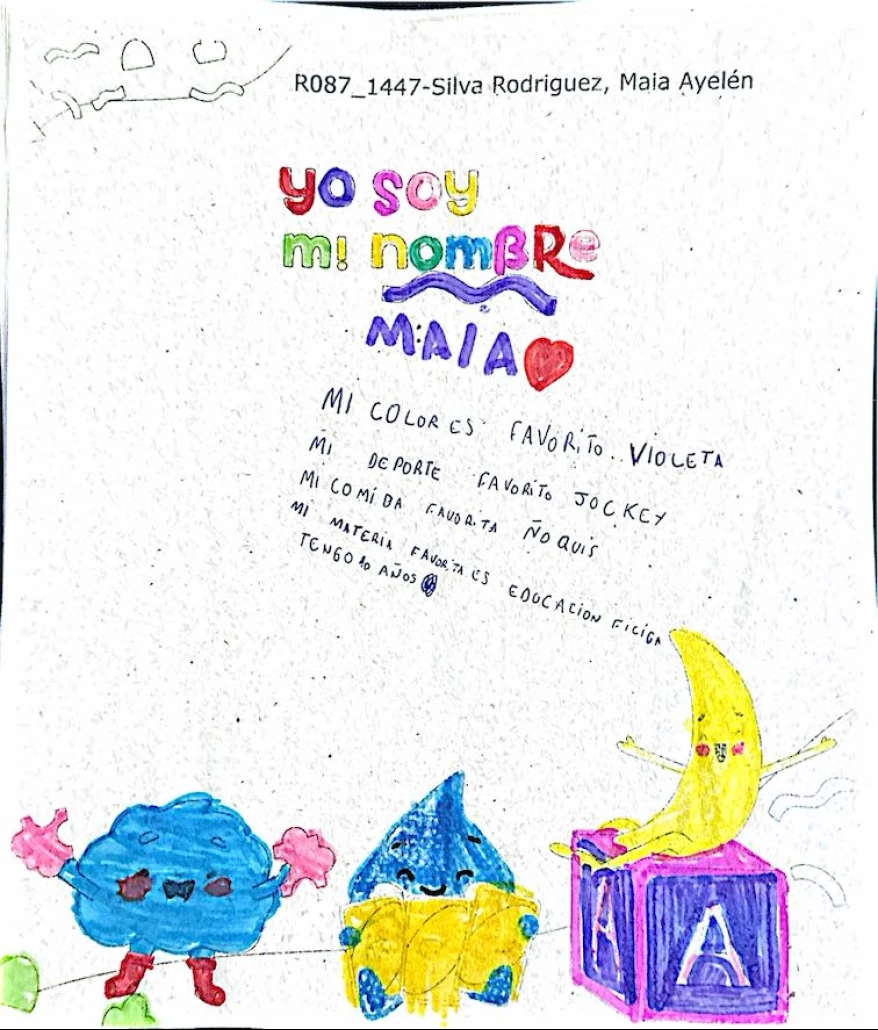 R087_1447-Silva Rodriguez, Maia Ayelén
yo soy
mi nomBRe
MAIA
MI COLOR ES FAVORiTo.. VIOLETA
MI DEPORTE FAVORITO JOCKEY
MI COMIDA FAVORITA ÑOQUIS
MI MATERIA FAVORITA ES EDUCACION FICIGA
TENGO 10 AÑOS
A A